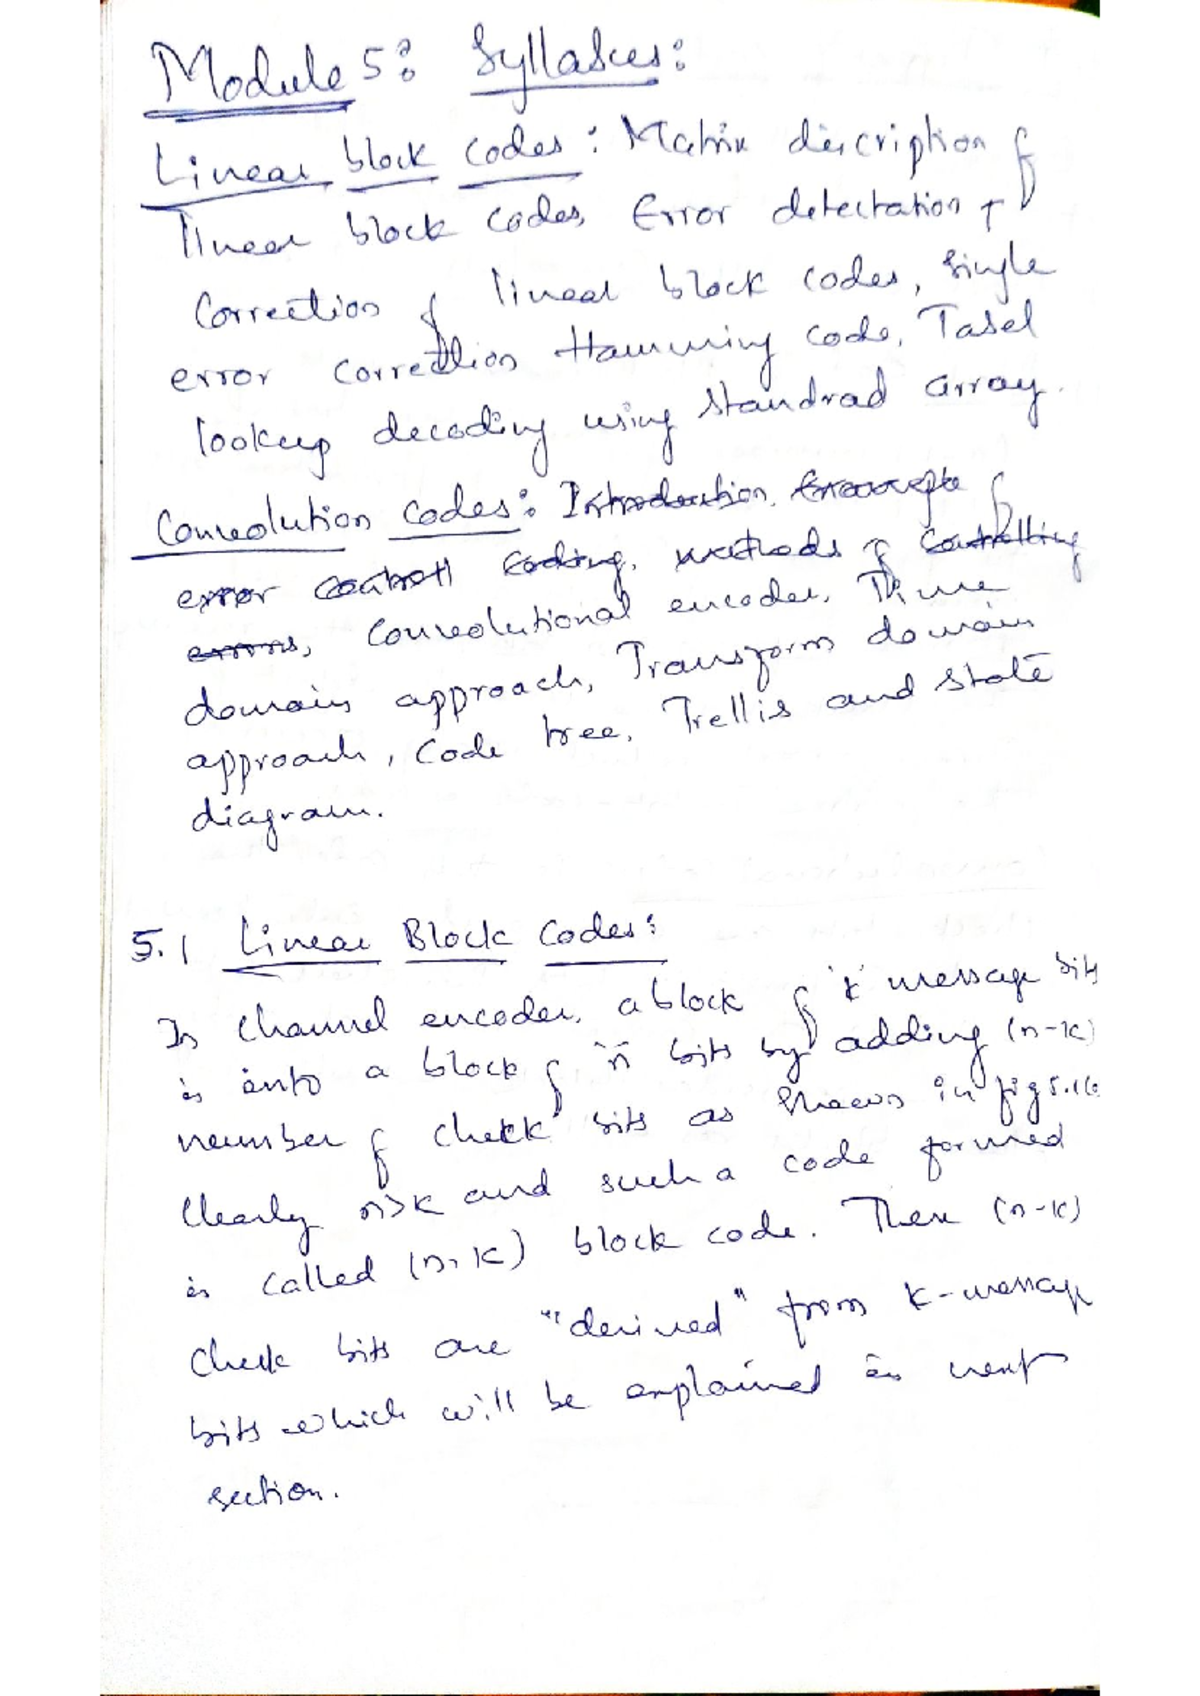 Module 5: Syllabus:
Linear block codes: Matrix discription of
linear block codes, Error detectation &
Correction of linear block codes, Single
error correction Hamming code, Tabel
lookup decoding using Standrad array.
Convolution codes: Introduction, Examples of
error control coding, methods of controlling
errors, Convolutional encoder, Time
domain approach, Transform domain
approach, Code tree, Trellis and state
diagram.
5.1 Linear Block Codes:
In channel encoder, a block of 'k' message bits
is into a block of 'n' bits by adding (n-k)
number of check bits as shown in fig 5.1(a
Clearly n>k and such a code formed
is called (n, k) block code. There (n-k)
check bits are "derived" from k-message
bits which will be explained in next
section.